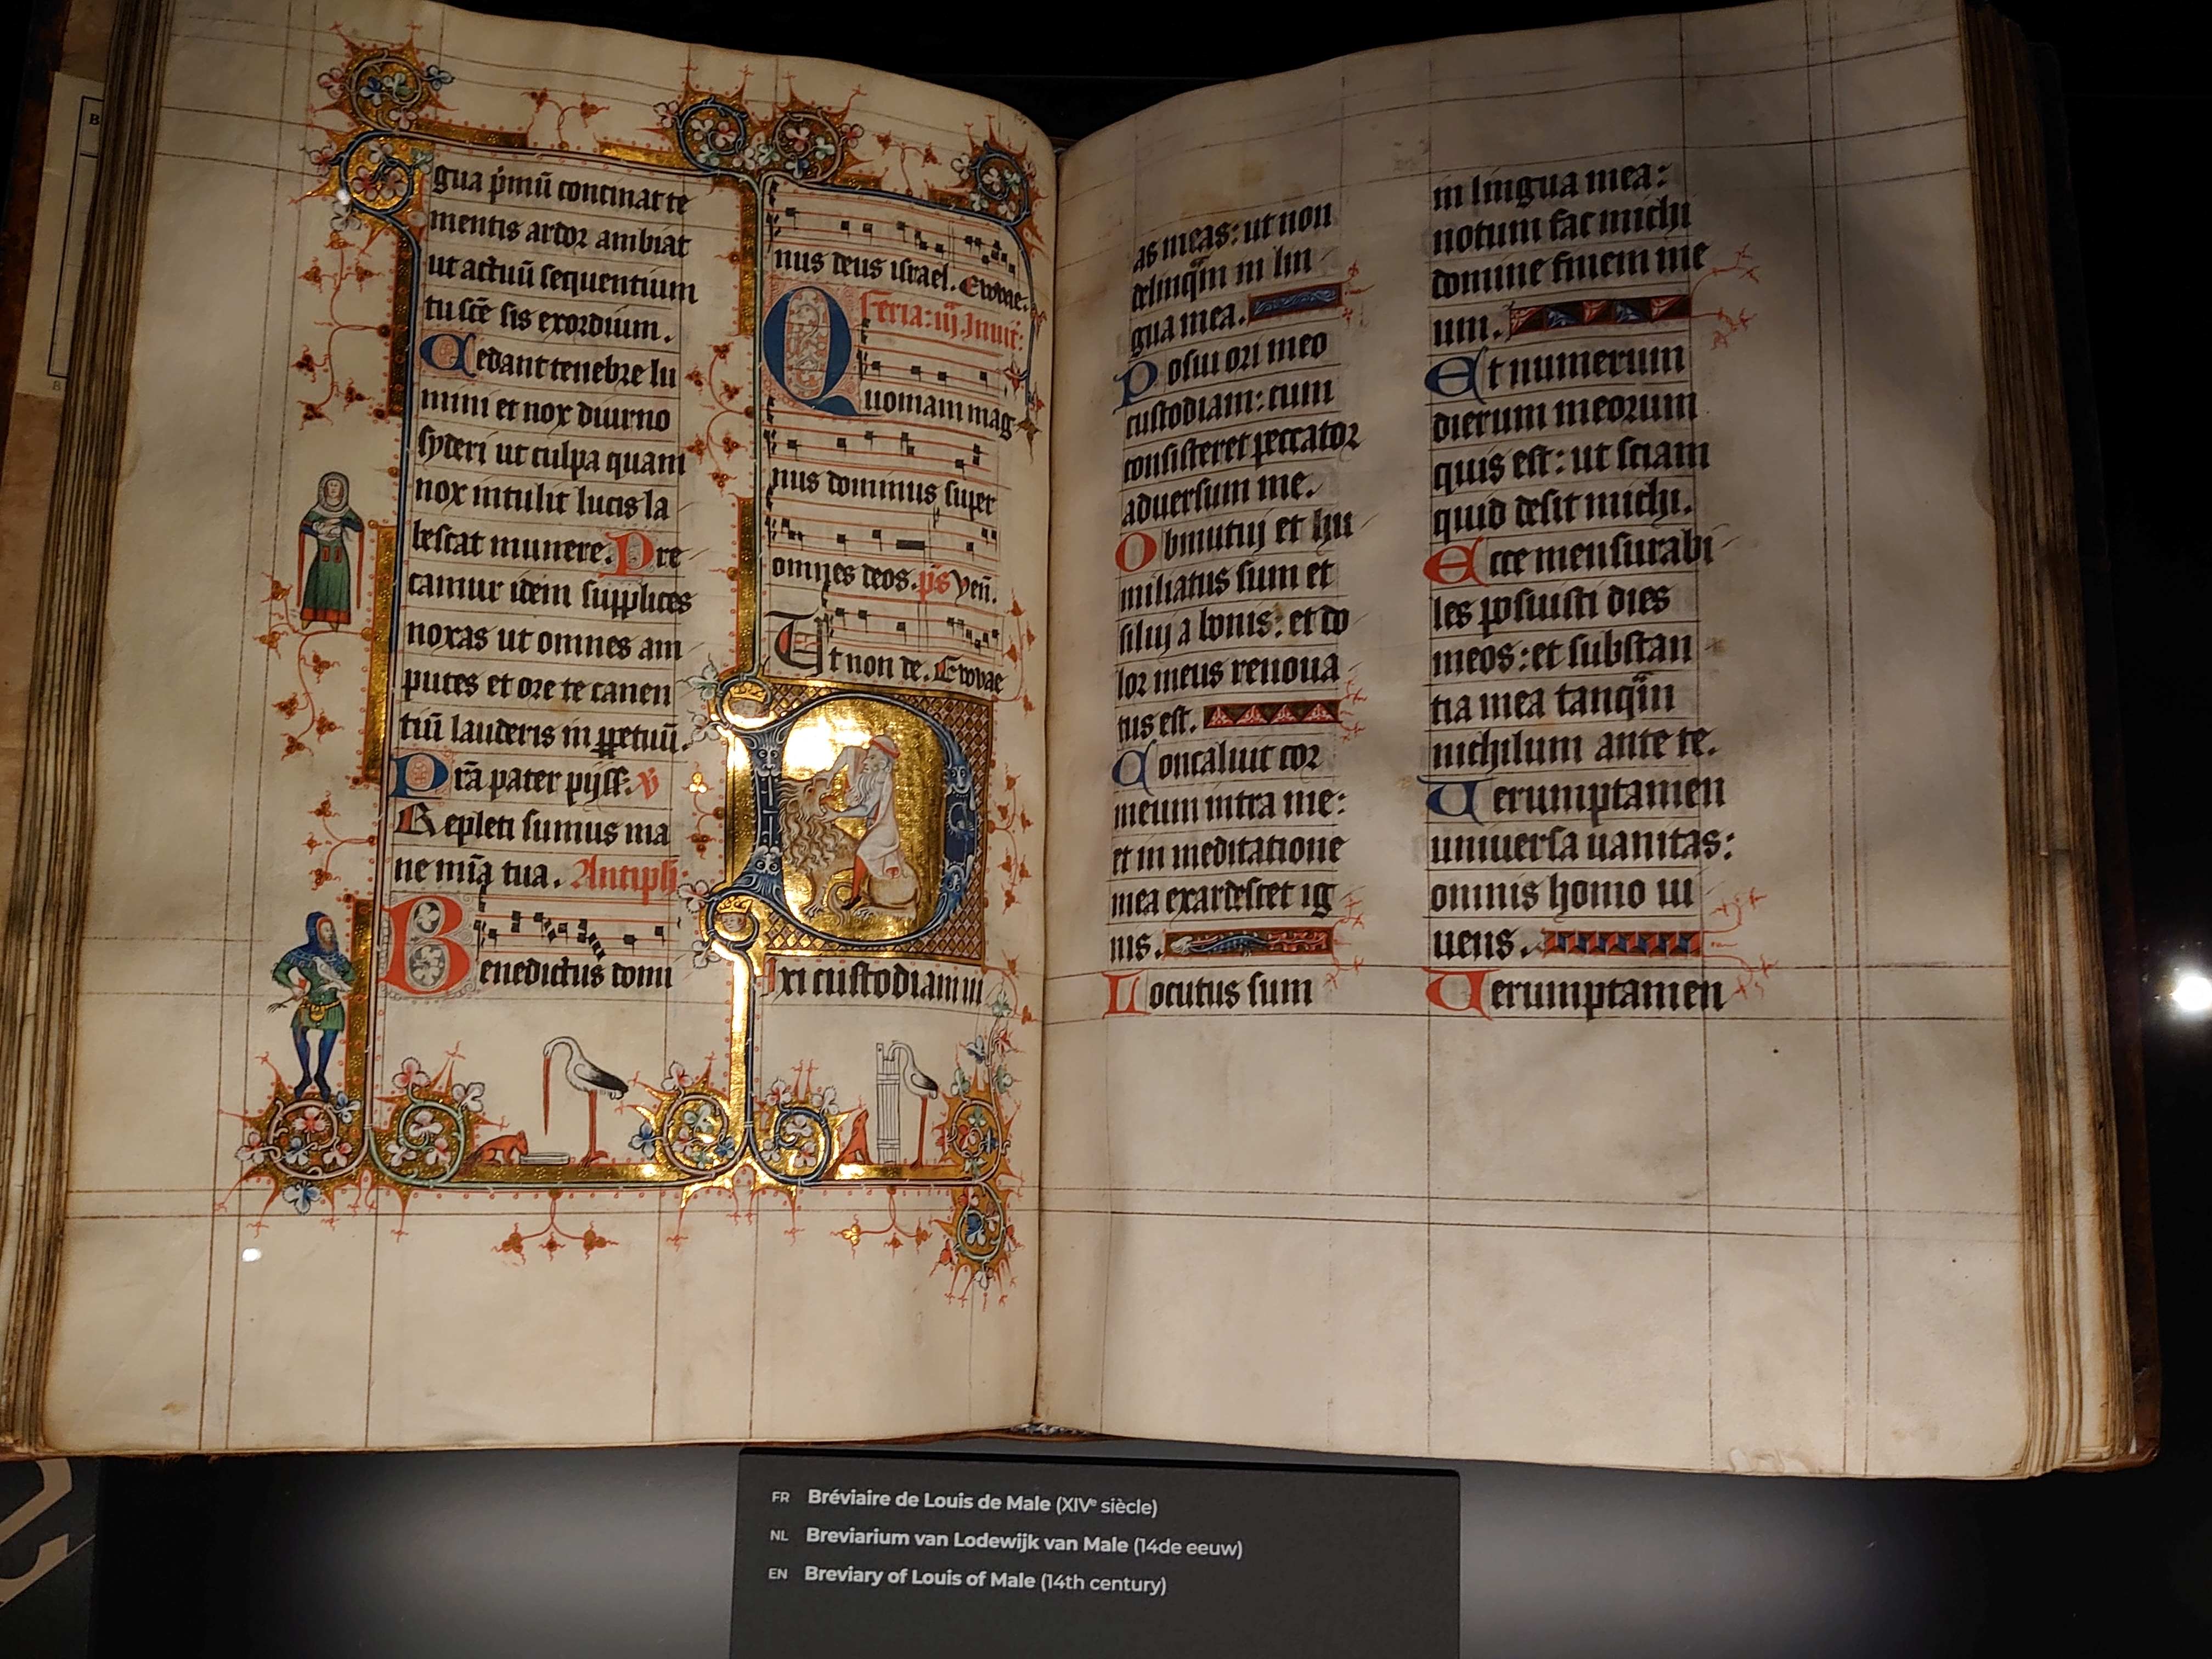 gua p̄mū concinat te
mentis ardor ambiat
ut actuū sequentium
tu scē sis exordium.
Cedant tenebre lu
mini et nox diurno
syderi ut culpa quam
nox intulit lucis la
bescat munere. Pre
camur idem supplices
noxas ut omnes am
putes et ore te canen
tiū lauderis in ꝑpetuū.
Prā pater pijss: v̄
Repleti sumus ma
ne mīa tua. Antiph:
Benedictus domi
nus deus israel. Evovae.
feria: iij Inuit:
Quoniam mag
nus dominus super
omnes deos. ps Ven̄.
Ut non de. Evovae
Dixi custodiam ui
as meas: ut non
delinqm̄ in lin
gua mea.
Posui ori meo
custodiam: cum
consisteret peccator
aduersum me.
Obmutuj et hu
miliatus sum et
siluj a bonis: et do
lor meus renoua
tus est.
Concaluit cor
meum intra me:
et in meditatione
mea exardescet ig
nis.
Locutus sum
in lingua mea:
notum fac michi
domine finem me
um.
Et numerum
dierum meorum
quis est: ut sciam
quid desit michi.
Ecce mensurabi
les posuisti dies
meos: et substan
tia mea tanqm̄
nichilum ante te.
Uerumptamen
uniuersa uanitas:
omnis homo ui
uens.
Uerumptamen
FR Bréviaire de Louis de Male (XIVᵉ siècle)
NL Breviarium van Lodewijk van Male (14de eeuw)
EN Breviary of Louis of Male (14th century)